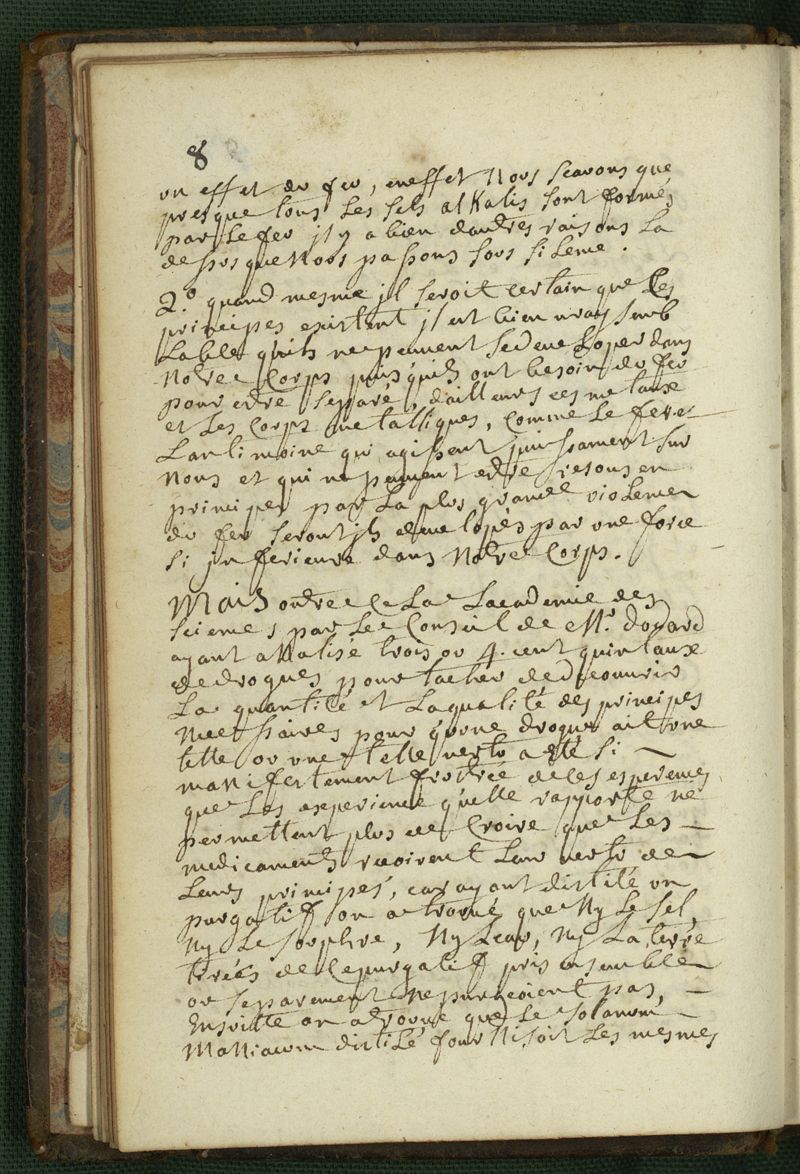 8
un effet du feu, en effet Nous scavons que
presque tous Les sels alKalis sont formés
par Le feu jl y a bien dautres raisons La
dessus que Nous passons sous silence.
2.° quand mesme jl seroit certain que Les
principes existent jl est bien vray semb
Lable quils ne peuvent se deveLoper dans
Nostre Corps puis quils ont besoin du feu
pour estre separé, dailleurs ces metaux
et Les Corps metalliques, comme Le fer et
Lantimoine qui agissent puissament sur
Nous et qui ne peuvent estre resous en
principes par La plus grande vioLence
du feu seront jls devellopés par une force
si jnferieure dans Nostre Corps.
Mais outre CeLa Lacademie des
sciences par Le Conseil de Mr. dodard
ayant aNalisé trois ou 4. cent quintaux
de drogues pour tacher de decouvrir
La quantité et La qualité des principes
Necessaires pour quune drogue ait une
telle ou une telle vertu a esté si
maNifestement frustrée de ses esperances
que Les experiences quelle rapporte ne
permettent plus de Croire que Les
medicaments recoivent Leur vertu de
Leurs principes, car ayant distilé un
purgatif on a trouvé que Ny Le sel,
Ny Le souphre, Ny Leau, Ny La terre
tirées de Ce purgatif pris ensemble
ou separement ne purgeoient pas,
Ensuitte on a trouvé que Le solanum
MaNiacum distiLé fourNisoit Les mesmes